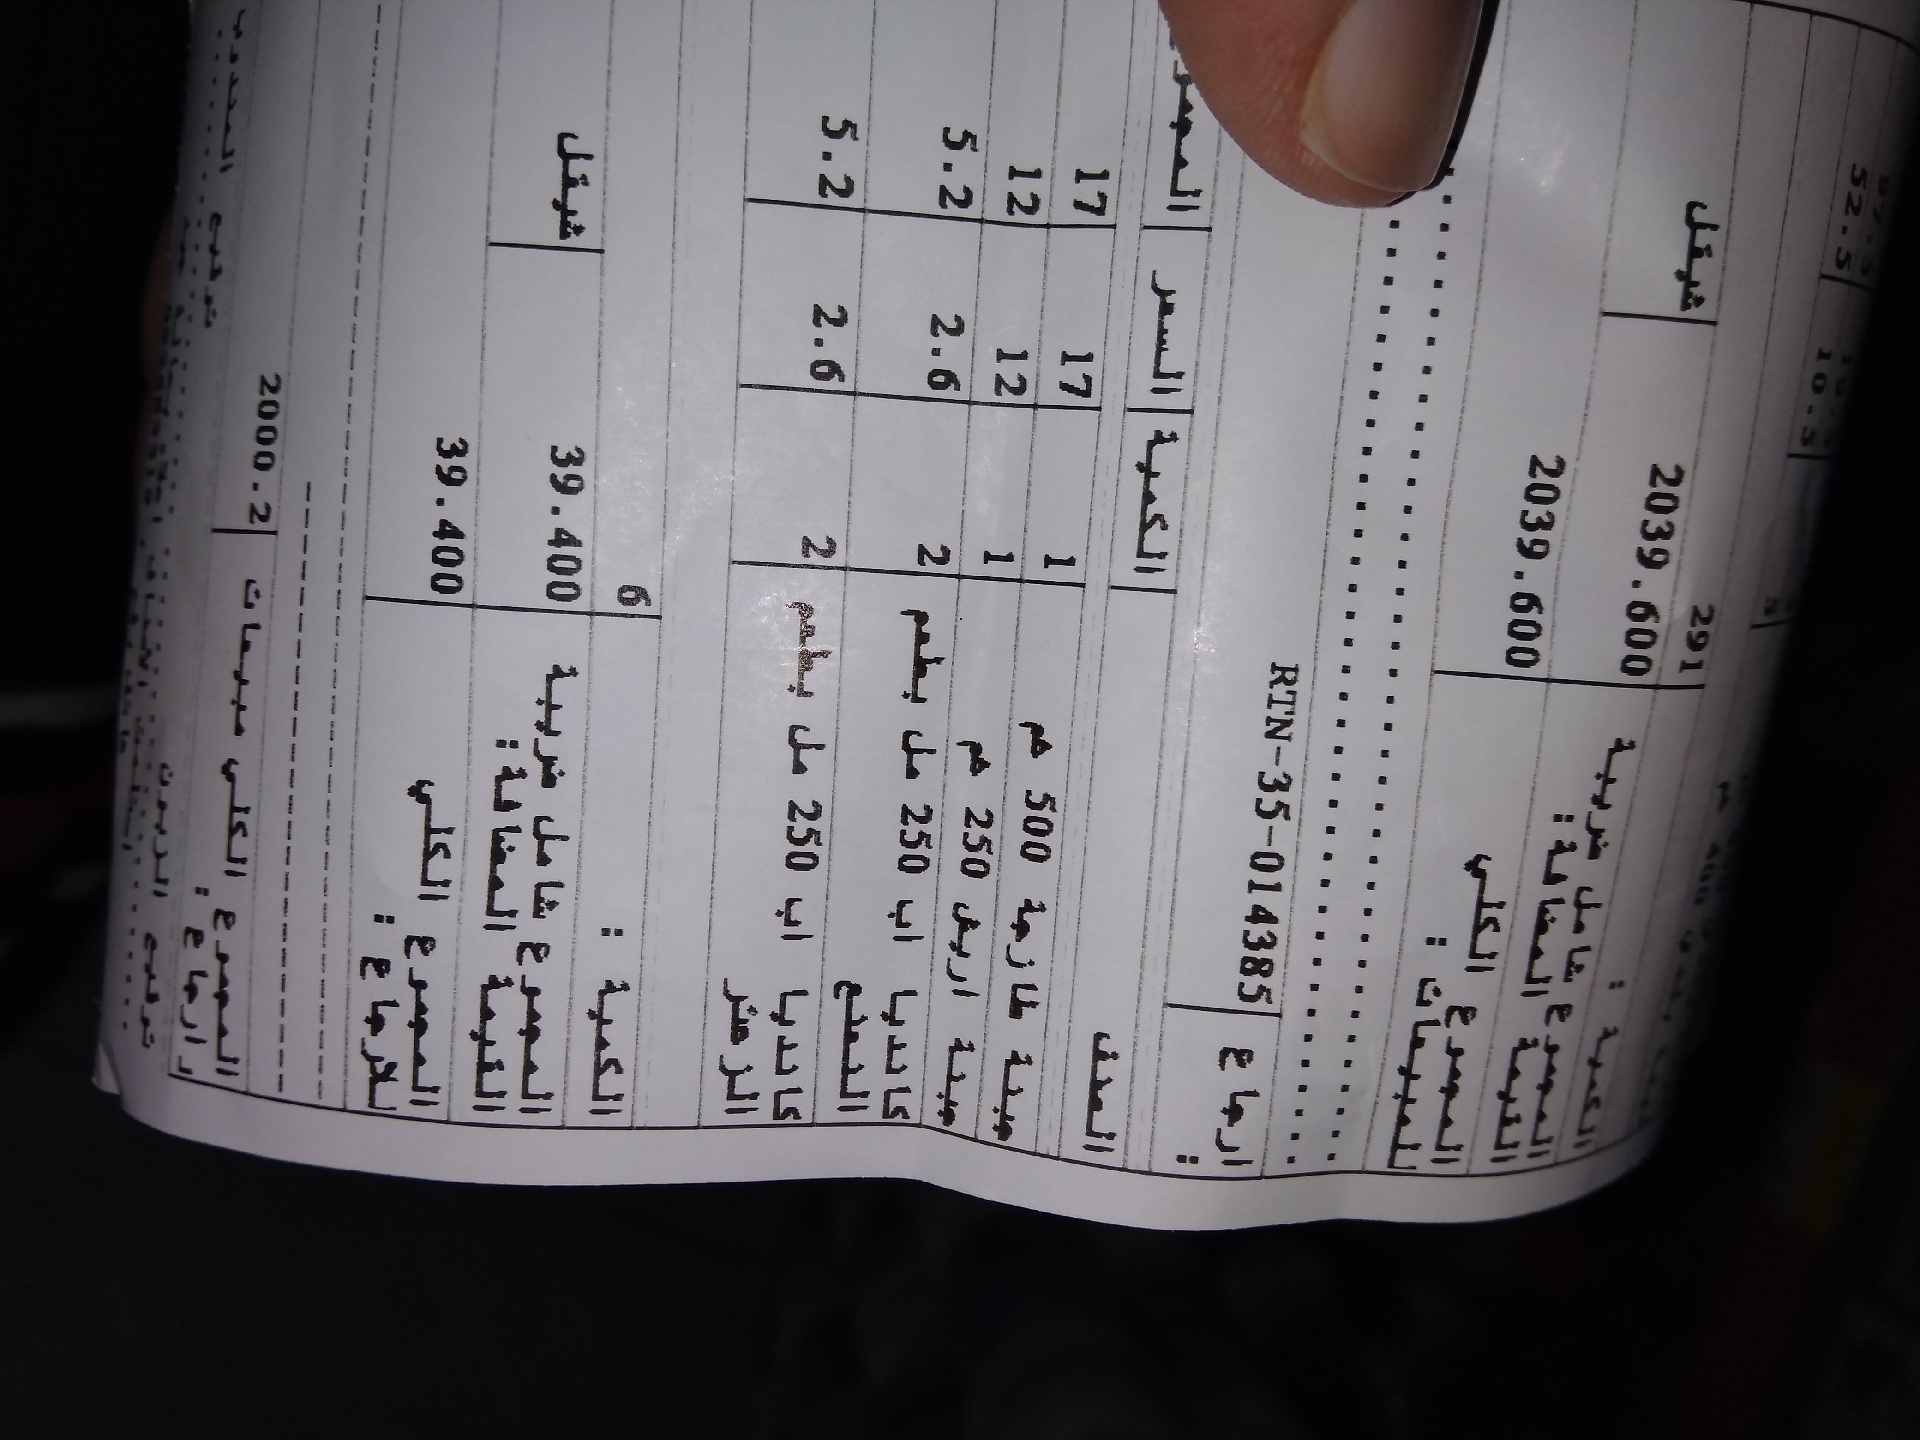 52.5 10.5 5
الكمية : 291
المجموع شامل ضريبة القيمة المضافة: 2039.600 شيقل
المجموع الكلي للمبيعات : 2039.600
ارجاع : RTN-35-014385
الصنف الكمية السعر
جبنة طازجة 500 غم 1 17 17
جبنة اريش 250 غم 1 12 12
كانديا اب 250 مل بطعم 2 2.6 5.2
النعنع
كانديا اب 250 مل بطعم 2 2.6 5.2
الزعتر
الكمية : 6
المجموع شامل ضريبة 39.400 شيقل
القيمة المضافة:
المجموع الكلي 39.400
للارجاع :
المجموع الكلي مبيعات 2000.2
- ارجاع :
توقيع الزبون توقيع المندوب